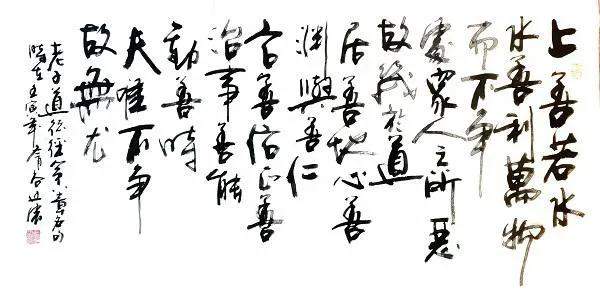 上善若水
水善利萬物
而不争
處衆人之所惡
故幾於道
居善地心善
渊與善仁
言善信正善
治事善能
動善時
夫唯不争
故無尤
老子道德經
時在壬寅年